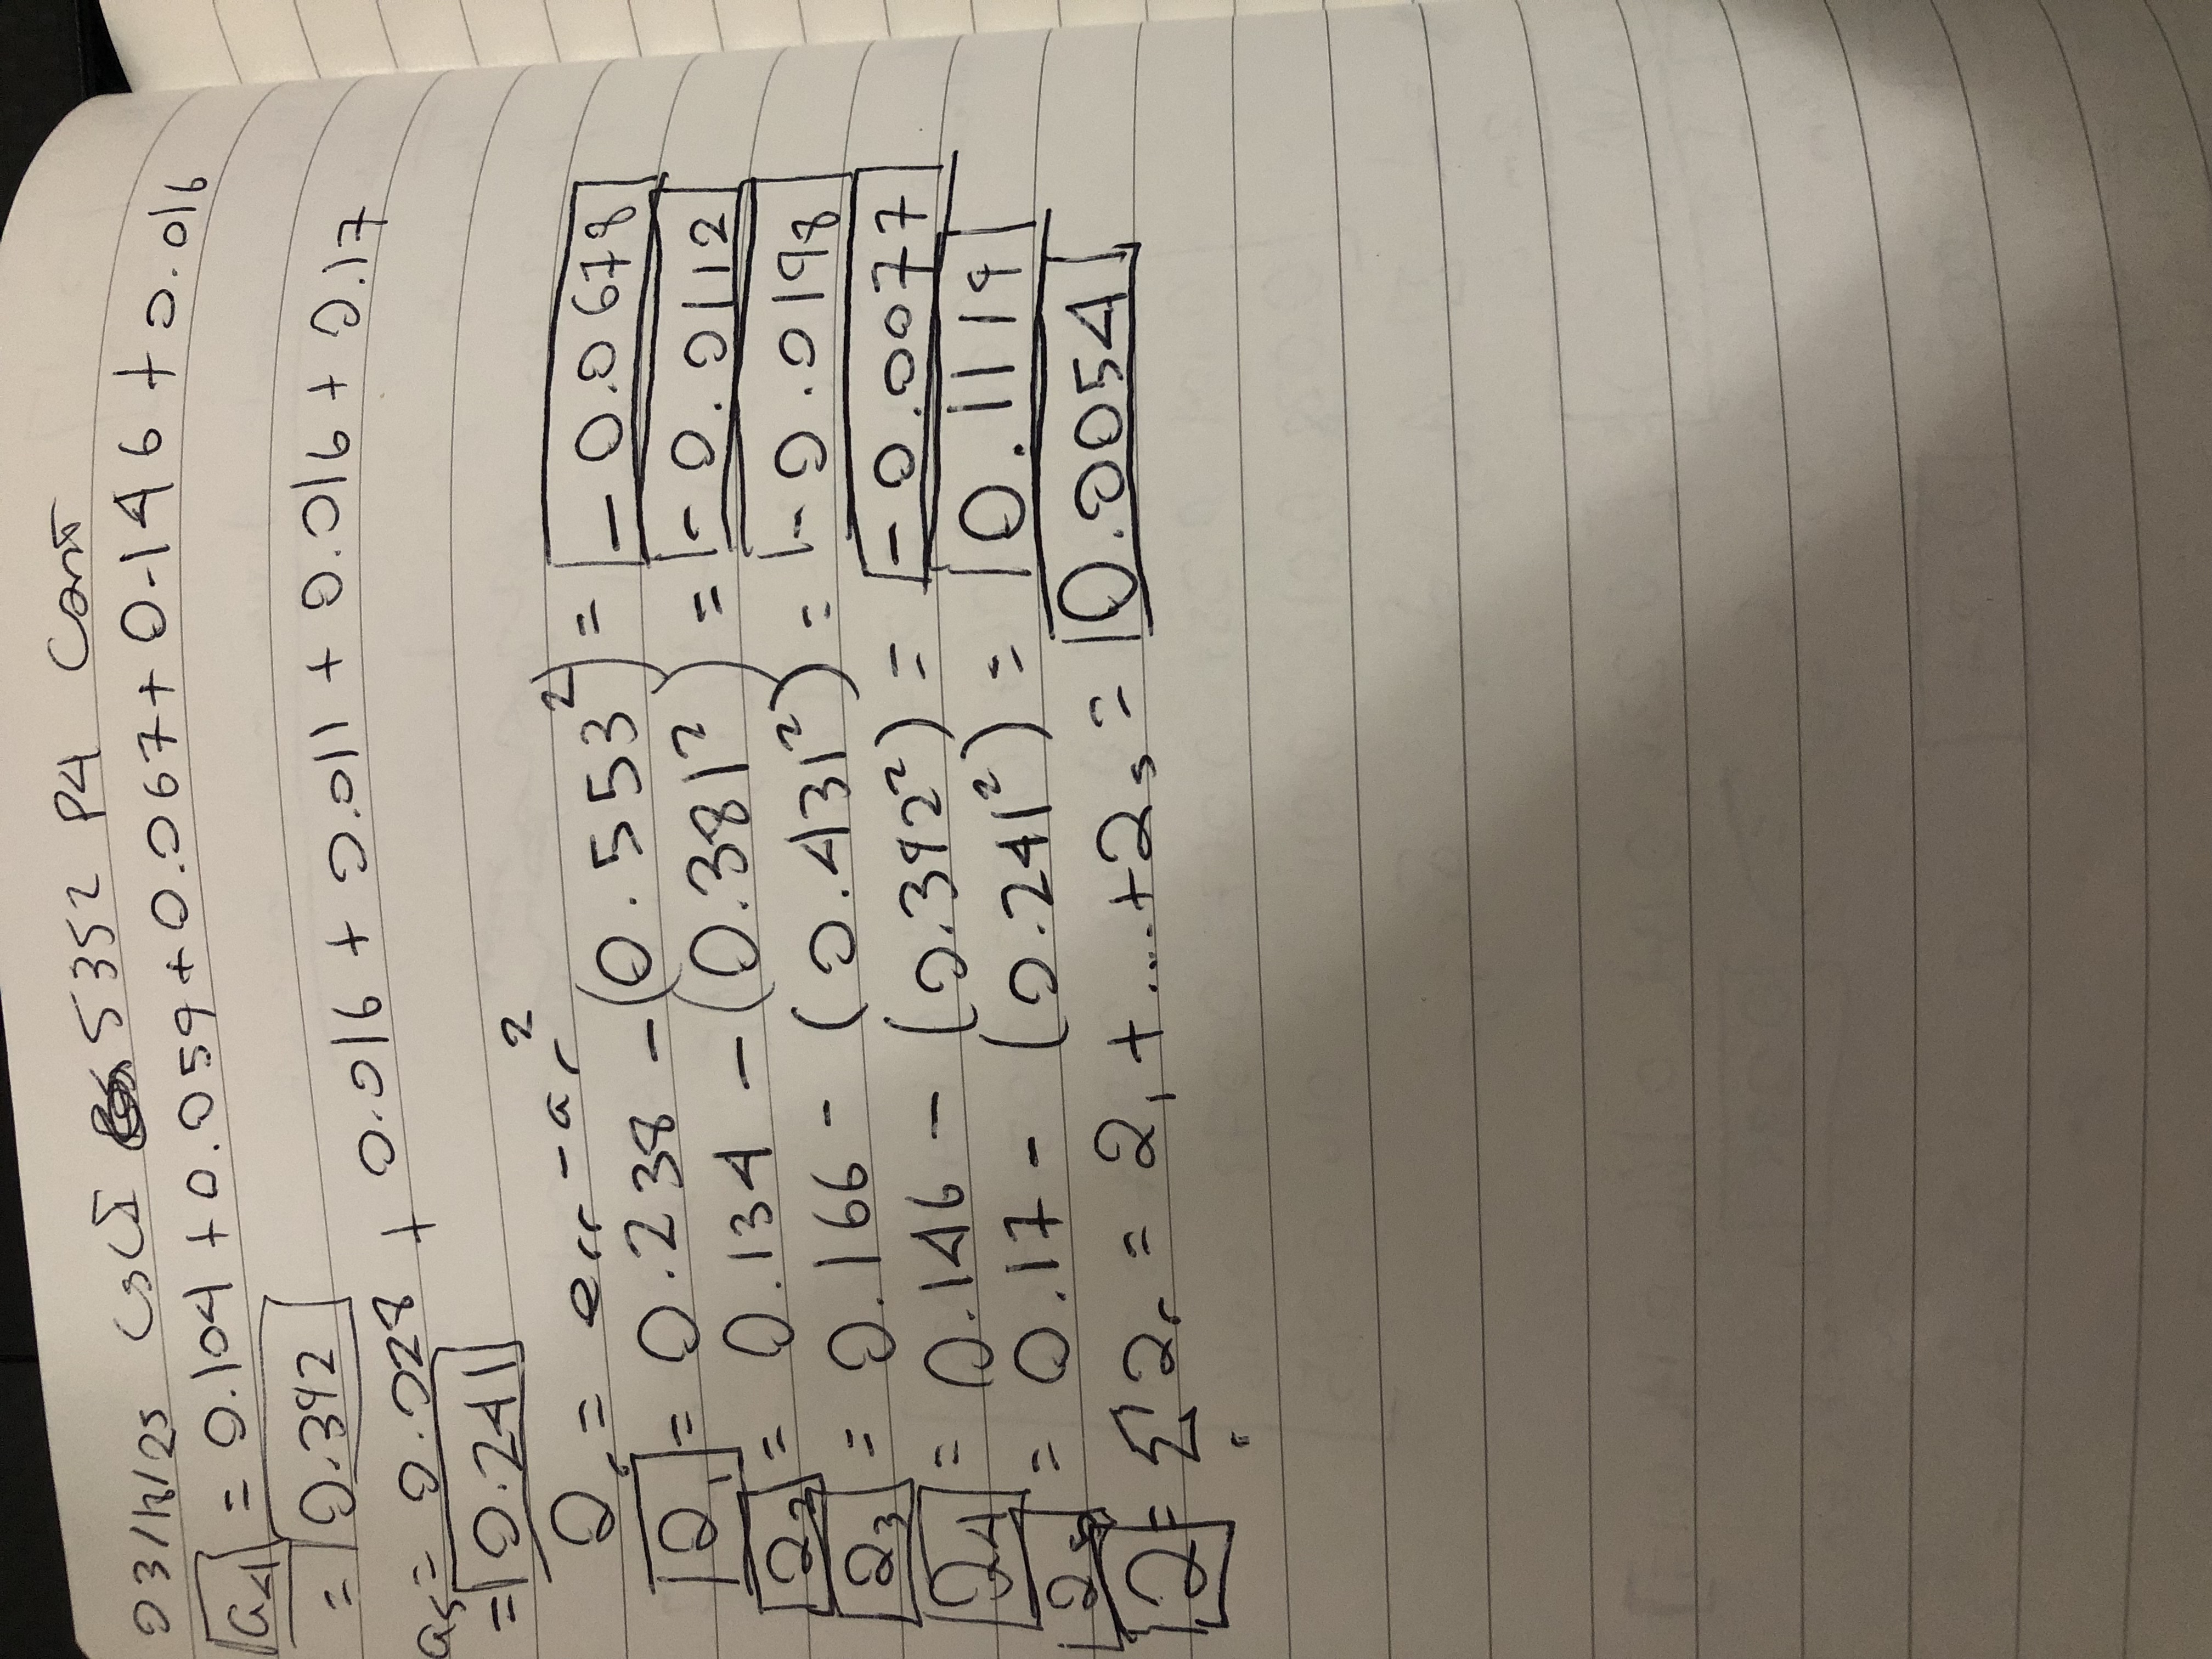 03/13/25 CSCI 5352 P4 Cont
a₄ = 0.104 + 0.059 + 0.067 + 0.146 + 0.016
= 0.392
a₅ = 0.028 + 0.016 + 0.011 + 0.016 + 0.17
= 0.241
Qᵣ = eᵣᵣ - aᵣ²
Q₁ = 0.238 - (0.553²) = -0.0678
Q₂ = 0.134 - (0.381²) = -0.0112
Q₃ = 0.166 - (0.431²) = -0.0198
Q₄ = 0.146 - (0.392²) = -0.0077
Q₅ = 0.17 - (0.241²) = 0.1119
Q = Σᵣ Qᵣ = Q₁ + ... + Q₅ = 0.0054